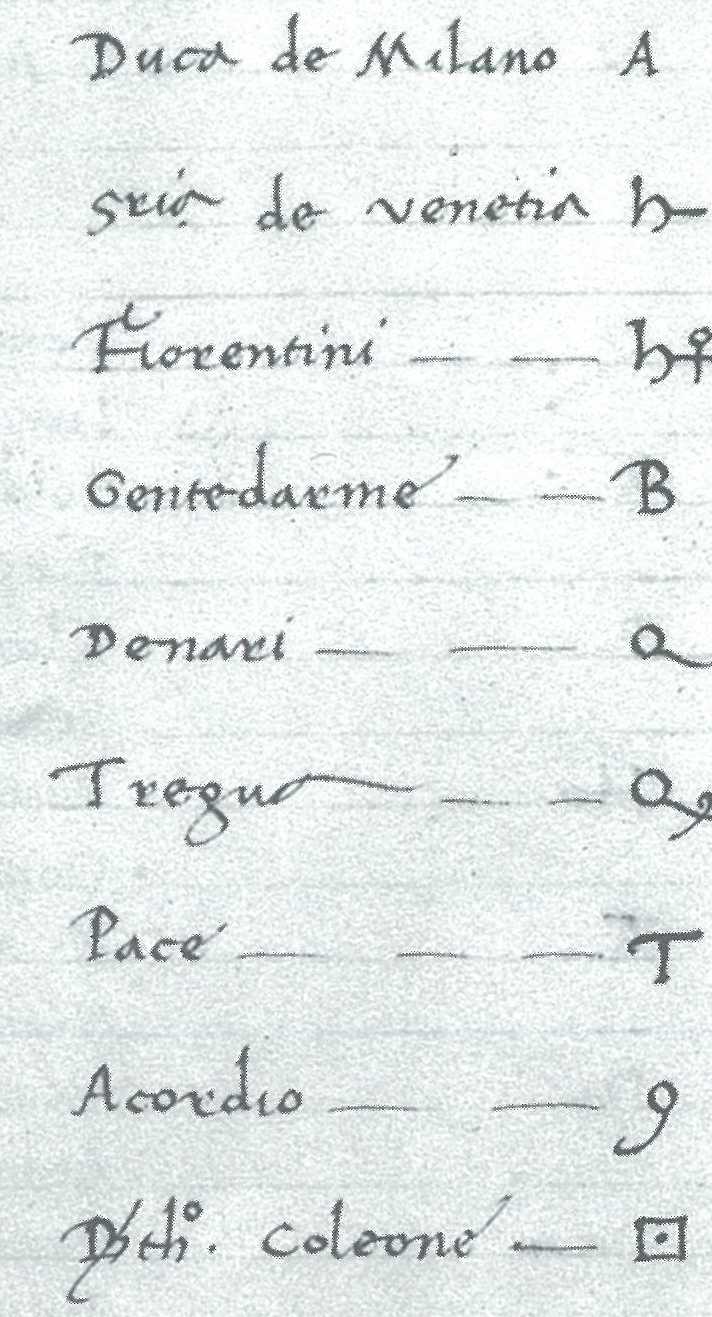 Duca de Milano A
Sria de venetia
Fiorentini — —
Gentedarme — — B
Denari — —
Tregua — —
Pace — — — T
Acordio — — 9
coleone — ⊡